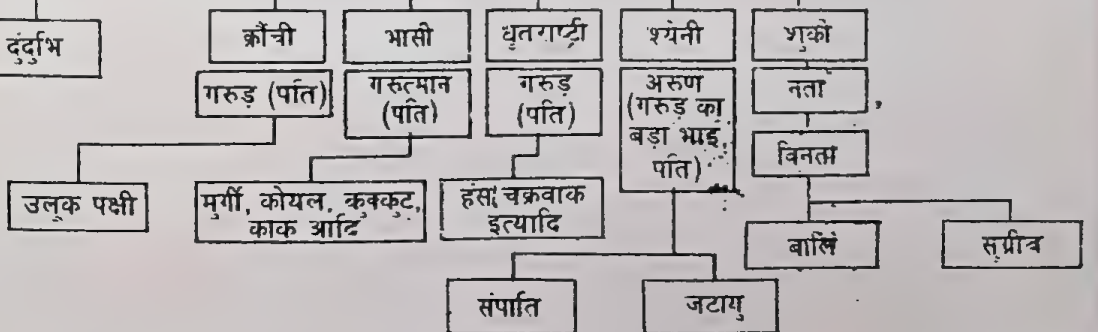 दुंर्दुाभ
क्रौंची
भासी
धृतराष्ट्री
श्येनी
शुकी
गरुड़ (पति)
गरुत्मान
(पति)
गरुड़
(पति)
अरुण
(गरुड़ का
बड़ा भाई,
पति)
नता
विनता
उलूक पक्षी
मुर्गी, कोयल, कुक्कुट,
काक आदि
हंस, चक्रवाक
इत्यादि
बालि
सुग्रीव
संपाति
जटायु